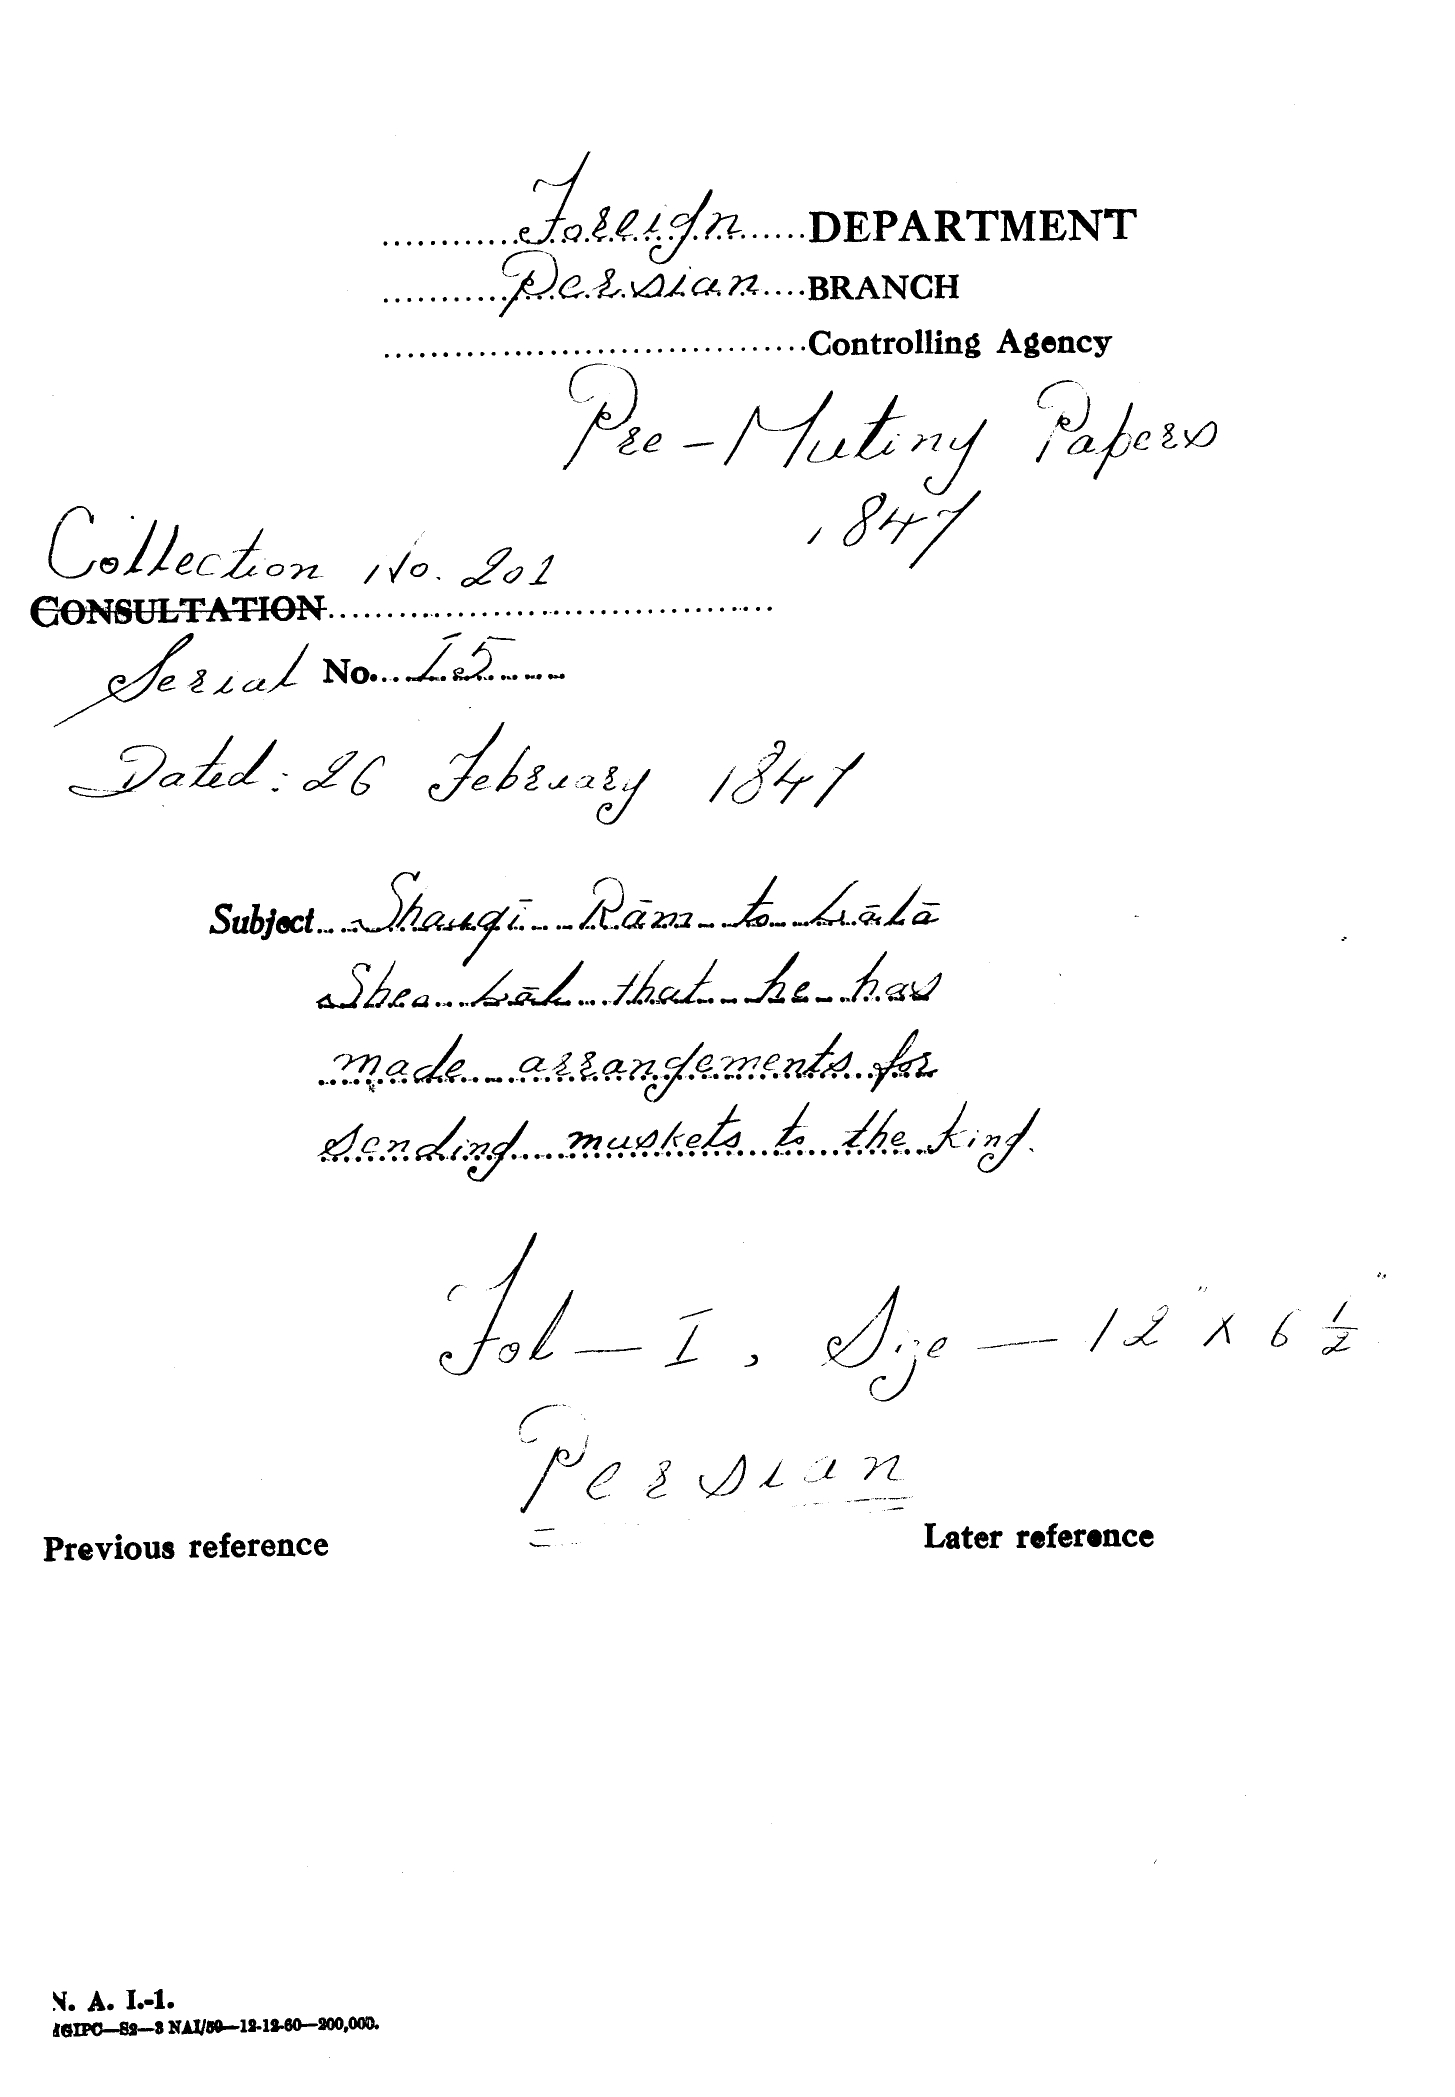 Foreign DEPARTMENT
Persian BRANCH
Controlling Agency
Pre-Mutiny Papers
1847
Collection No. 201
CONSULTATION
Serial No. 15
Dated: 26 February 1847
Subject Shauqī Rām to Lālā
Sheo Lāl that he has
made arrangements for
sending muskets to the king.
Fol — 1, Size — 12" × 6 ½"
Persian
Previous reference Later reference
N. A. I.-1.
MGIPC—S2—3 NAI/59—12-12-60—200,000.